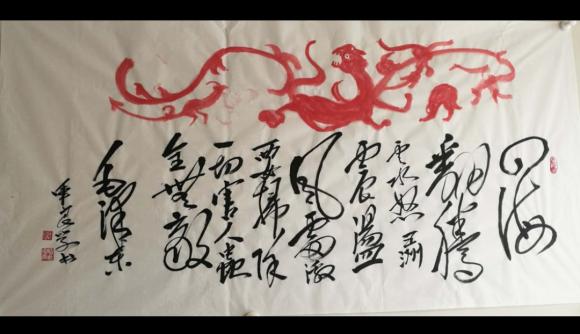 四海
翻騰
云水怒五洲
震盪
風雷激
要掃除
一切害人蟲
全無敵
毛澤東